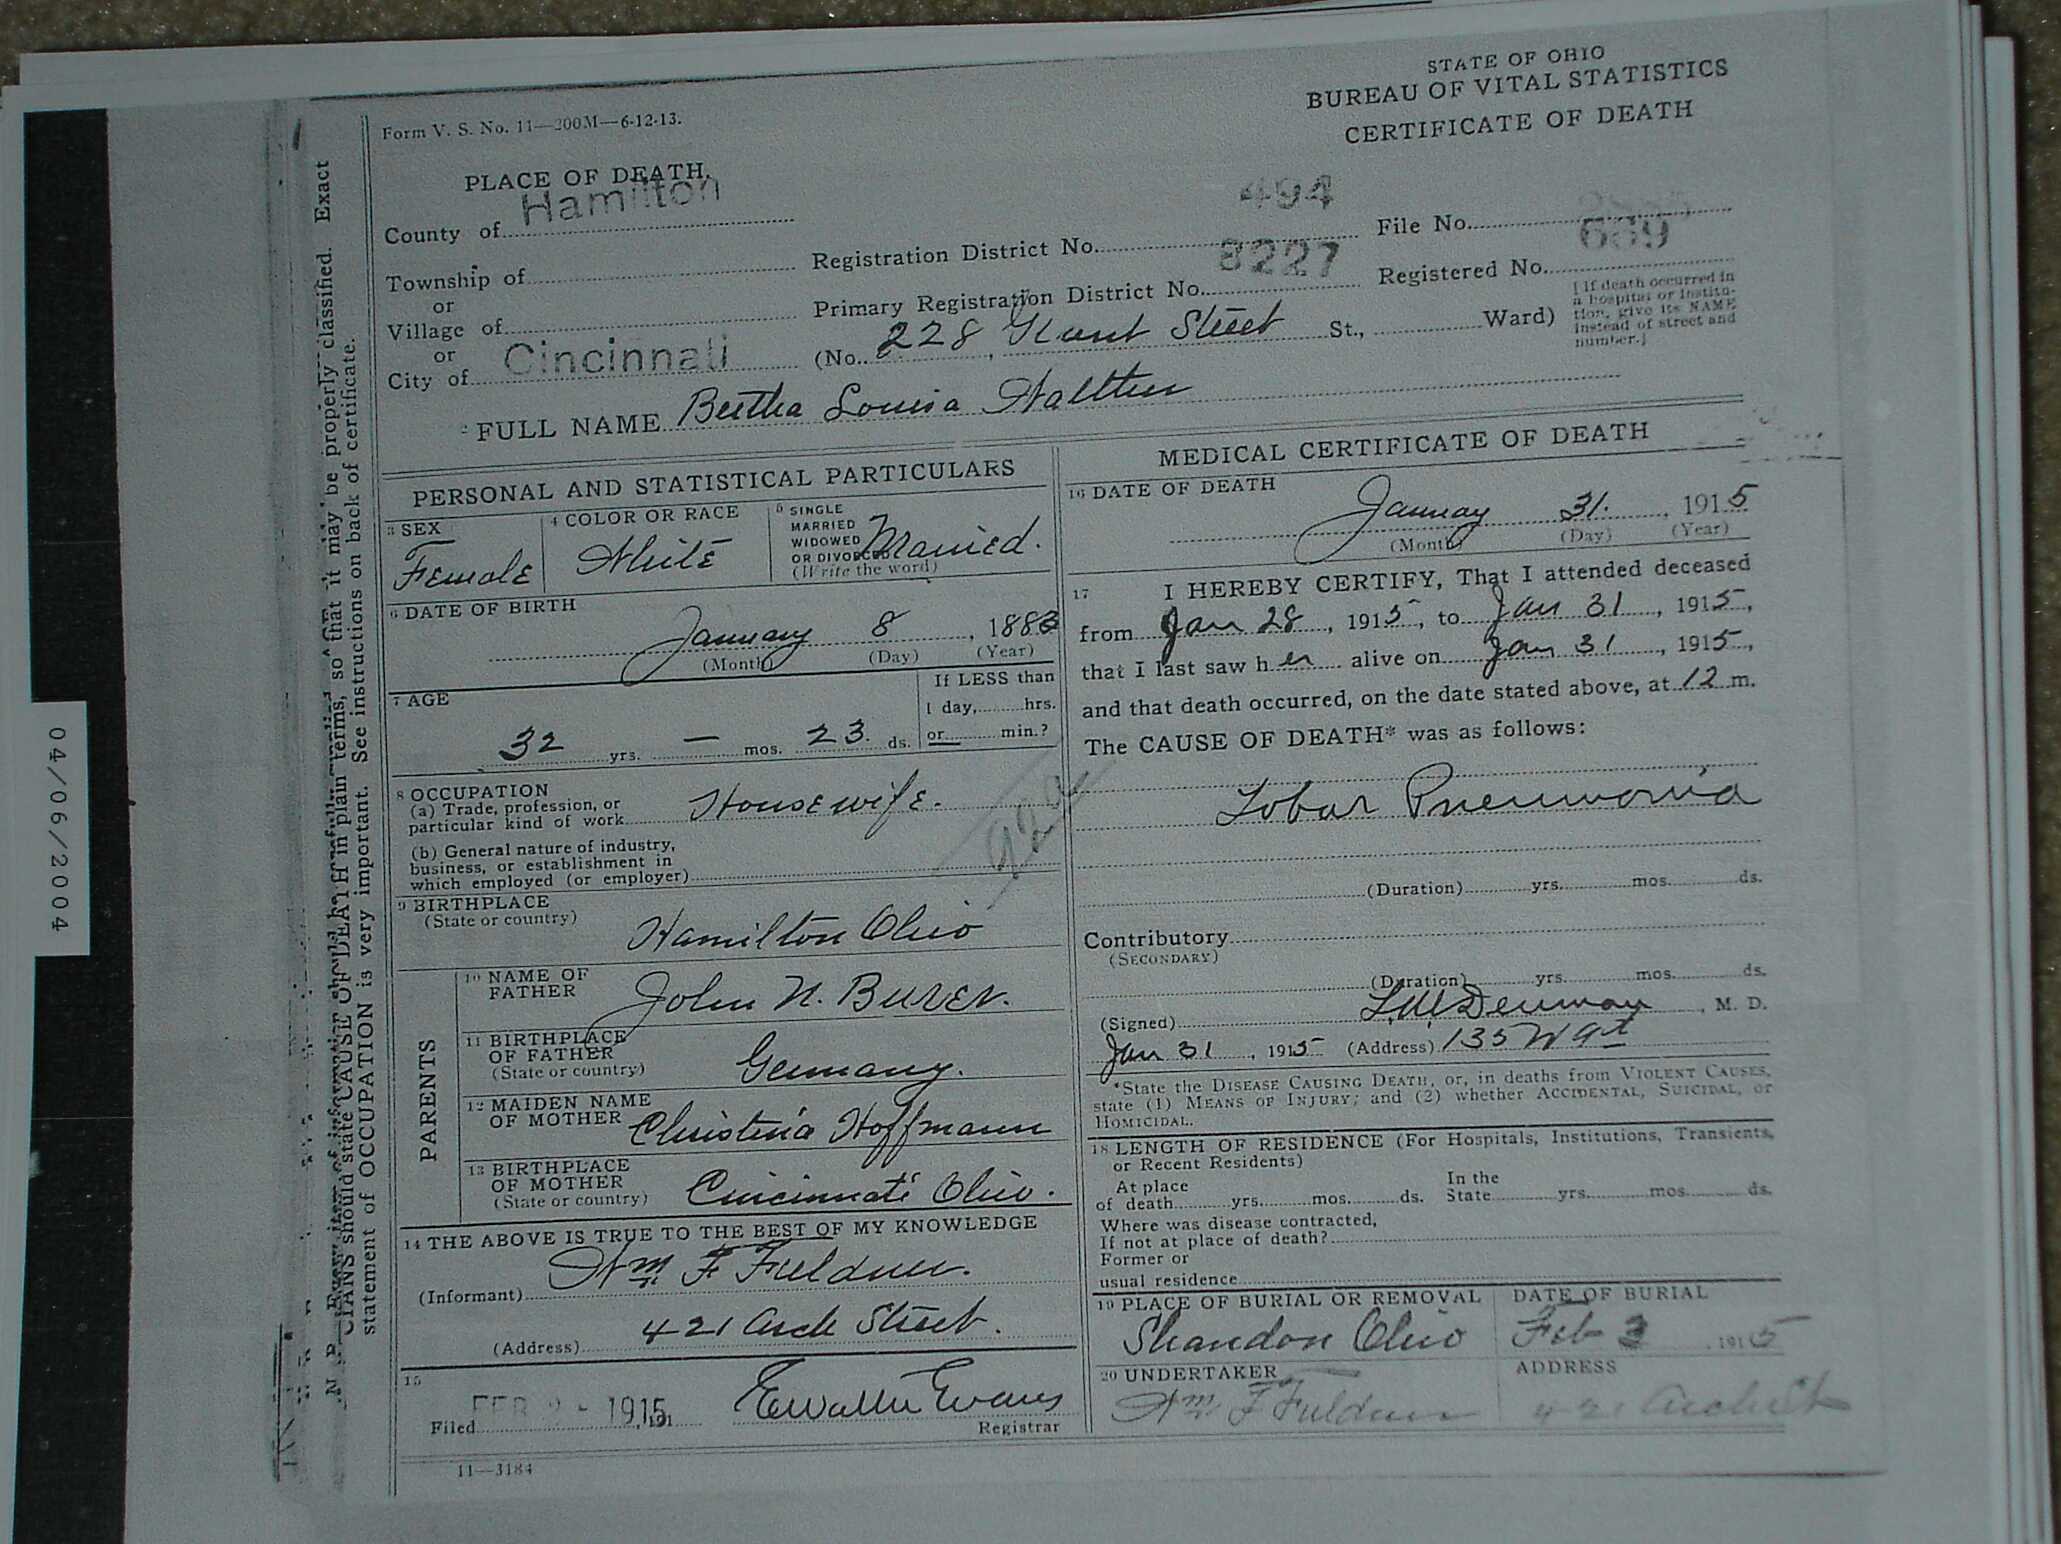 STATE OF OHIO
BUREAU OF VITAL STATISTICS
CERTIFICATE OF DEATH
Form V. S. No. 11—200M—6-12-13.
PLACE OF DEATH.
County of Hamilton
Township of
or
Village of
or
City of Cincinnati
Registration District No. 494
File No.
Primary Registration District No. 8227
Registered No. 689
(No. 228 Street St., Ward)
[If death occurred in
a hospital or institu-
tion, give its NAME
instead of street and
number.]
2 FULL NAME Bertha Louisa
PERSONAL AND STATISTICAL PARTICULARS
3 SEX
Female
4 COLOR OR RACE
White
5 SINGLE
MARRIED
WIDOWED
OR DIVORCED
(Write the word)
Married.
6 DATE OF BIRTH
January 8, 1883
(Month) (Day) (Year)
7 AGE
32 yrs. — mos. 23 ds.
If LESS than
1 day, hrs.
or min.?
8 OCCUPATION
(a) Trade, profession, or
particular kind of work Housewife.
(b) General nature of industry,
business, or establishment in
which employed (or employer)
92a
9 BIRTHPLACE
(State or country)
Hamilton Ohio
PARENTS
10 NAME OF
FATHER
John N. Burer.
11 BIRTHPLACE
OF FATHER
(State or country)
Germany.
12 MAIDEN NAME
OF MOTHER
Christina Hoffmann
13 BIRTHPLACE
OF MOTHER
(State or country)
Cincinnati Ohio.
14 THE ABOVE IS TRUE TO THE BEST OF MY KNOWLEDGE
(Informant) Wm F
(Address) 421 Arch Street.
15
Filed FEB 2 - 1915, 191
Evans
Registrar
11—3184
MEDICAL CERTIFICATE OF DEATH
16 DATE OF DEATH
January 31., 1915
(Month) (Day) (Year)
17 I HEREBY CERTIFY, That I attended deceased
from Jan 28, 1915, to Jan 31, 1915,
that I last saw her alive on Jan 31, 1915,
and that death occurred, on the date stated above, at 12 m.
The CAUSE OF DEATH* was as follows:
Lobar Pneumonia
(Duration) yrs. mos. ds.
Contributory
(SECONDARY)
(Duration) yrs. mos. ds.
(Signed) Denman, M. D.
Jan 31, 1915 (Address) 135 W 9th
*State the DISEASE CAUSING DEATH, or, in deaths from VIOLENT CAUSES,
state (1) MEANS OF INJURY; and (2) whether ACCIDENTAL, SUICIDAL, or
HOMICIDAL.
18 LENGTH OF RESIDENCE (For Hospitals, Institutions, Transients,
or Recent Residents)
At place
of death yrs. mos. ds.
In the
State yrs. mos. ds.
Where was disease contracted,
If not at place of death?
Former or
usual residence
19 PLACE OF BURIAL OR REMOVAL
Shandon Ohio
DATE OF BURIAL
Feb 3 1915
20 UNDERTAKER
Wm F
ADDRESS
421 Arch St
Exact
CIANS should state CAUSE OF DEATH in plain terms, so that it may be properly classified.
statement of OCCUPATION is very important. See instructions on back of certificate.
04/06/2004